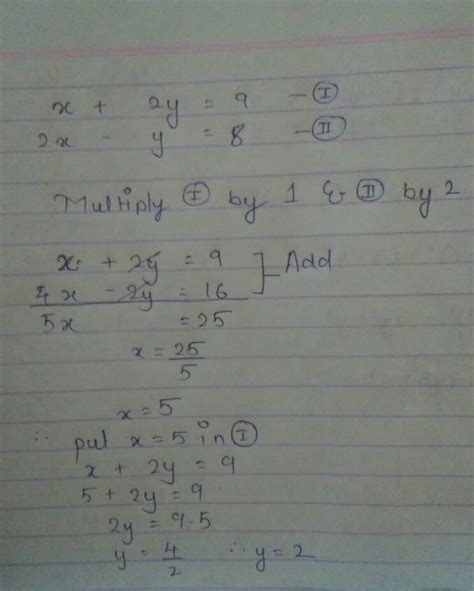 x + 2y = 9 — Ⓘ
2x - y = 8 — Ⓘ︎Ⓘ
Multiply Ⓘ by 1 & (II) by 2
x + 2y = 9
4x - 2y = 16 ] Add
5x = 25
x = 25/5
x = 5
∴ put x = 5 in Ⓘ
x + 2y = 9
5 + 2y = 9
2y = 9-5
y = 4/2 ∴ y = 2